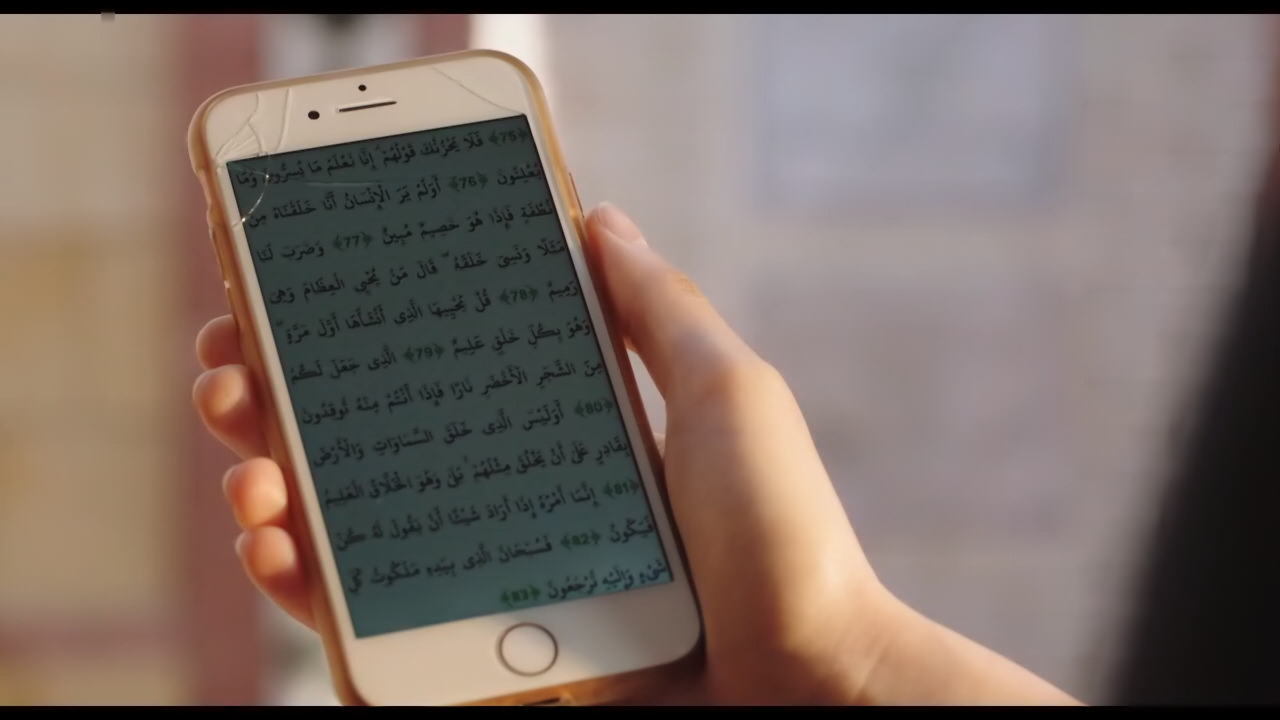 ﴿75﴾ فَلَا يَحْزُنْكَ قَوْلُهُمْ ۘ إِنَّا نَعْلَمُ مَا يُسِرُّونَ وَمَا
يُعْلِنُونَ ﴿76﴾ أَوَلَمْ يَرَ الْإِنْسَانُ أَنَّا خَلَقْنَاهُ مِنْ
نُطْفَةٍ فَإِذَا هُوَ خَصِيمٌ مُبِينٌ ﴿77﴾ وَضَرَبَ لَنَا
مَثَلًا وَنَسِيَ خَلْقَهُ ۖ قَالَ مَنْ يُحْيِي الْعِظَامَ وَهِيَ
رَمِيمٌ ﴿78﴾ قُلْ يُحْيِيهَا الَّذِي أَنْشَأَهَا أَوَّلَ مَرَّةٍ ۖ
وَهُوَ بِكُلِّ خَلْقٍ عَلِيمٌ ﴿79﴾ الَّذِي جَعَلَ لَكُمْ
مِنَ الشَّجَرِ الْأَخْضَرِ نَارًا فَإِذَا أَنْتُمْ مِنْهُ تُوقِدُونَ
﴿80﴾ أَوَلَيْسَ الَّذِي خَلَقَ السَّمَاوَاتِ وَالْأَرْضَ
بِقَادِرٍ عَلَىٰ أَنْ يَخْلُقَ مِثْلَهُمْ ۚ بَلَىٰ وَهُوَ الْخَلَّاقُ الْعَلِيمُ
﴿81﴾ إِنَّمَا أَمْرُهُ إِذَا أَرَادَ شَيْئًا أَنْ يَقُولَ لَهُ كُنْ
فَيَكُونُ ﴿82﴾ فَسُبْحَانَ الَّذِي بِيَدِهِ مَلَكُوتُ كُلِّ
شَيْءٍ وَإِلَيْهِ تُرْجَعُونَ ﴿83﴾